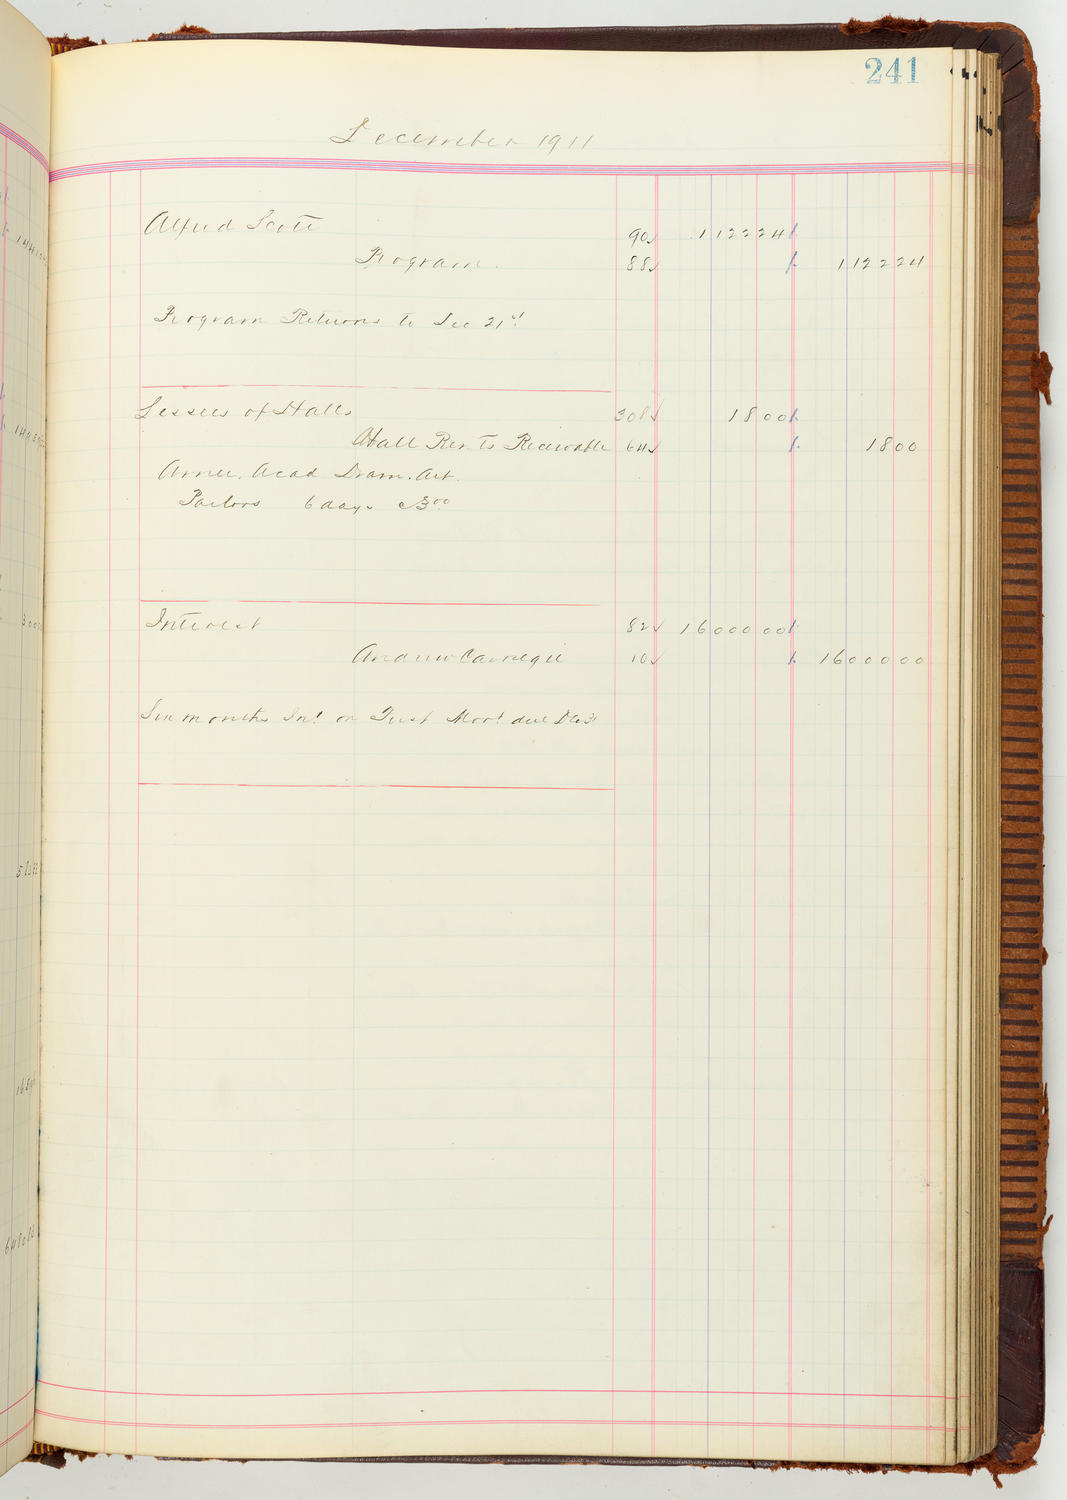 241
December 1911
Alfred Scott 90 112224
Program. 88 112224
Program Returns to Dec 21st
Lessees of Halls 308 1800
Hall Rents Receivable 64 1800
Amer. Acad Dram. Art.
Parlors 6 days @ 3.00
Interest 82 1600000
Andrew Carnegie 10 1600000
Six months Int on First Mort due Dec 31